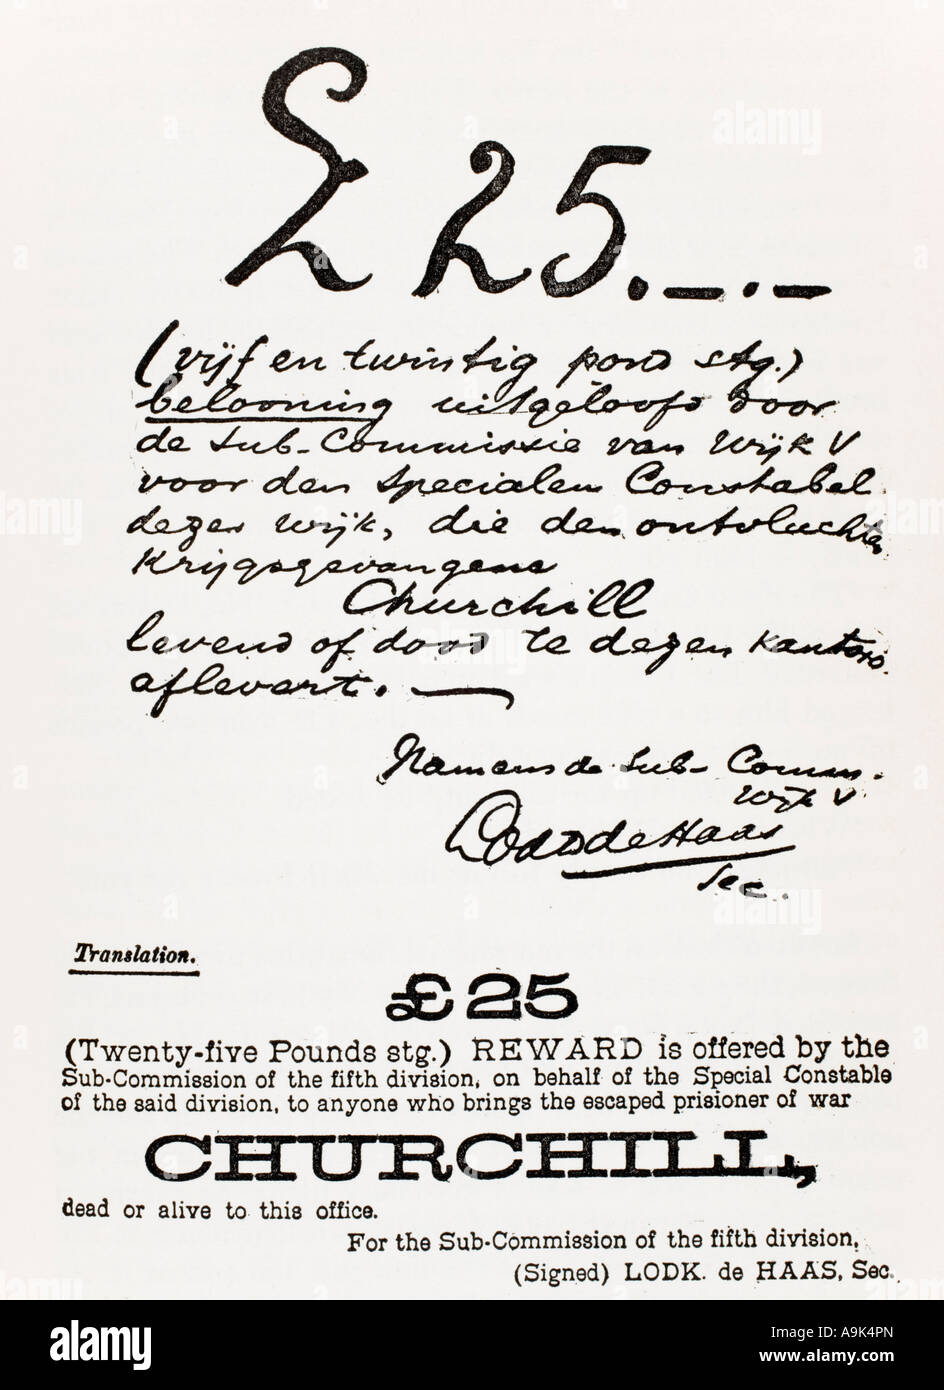 £ 25._._
(vijf en twintig pond stg.)
belooning uitgeloofd door
de Sub-Commissie van Wijk V
voor den Specialen Constabel
dezer wijk, die den ontvluchten
Krijgsgevangene
Churchill
levend of dood te dezen kantore
aflevert. —
Namens de Sub-Comm.
Wijk V
Lodk de Haas
Sec.
Translation.
£25
(Twenty-five Pounds stg.) REWARD is offered by the
Sub-Commission of the fifth division, on behalf of the Special Constable
of the said division, to anyone who brings the escaped prisioner of war
CHURCHILL,
dead or alive to this office.
For the Sub-Commission of the fifth division,
(Signed) LODK. de HAAS, Sec.
alamy
Image ID: A9K4PN
www.alamy.com